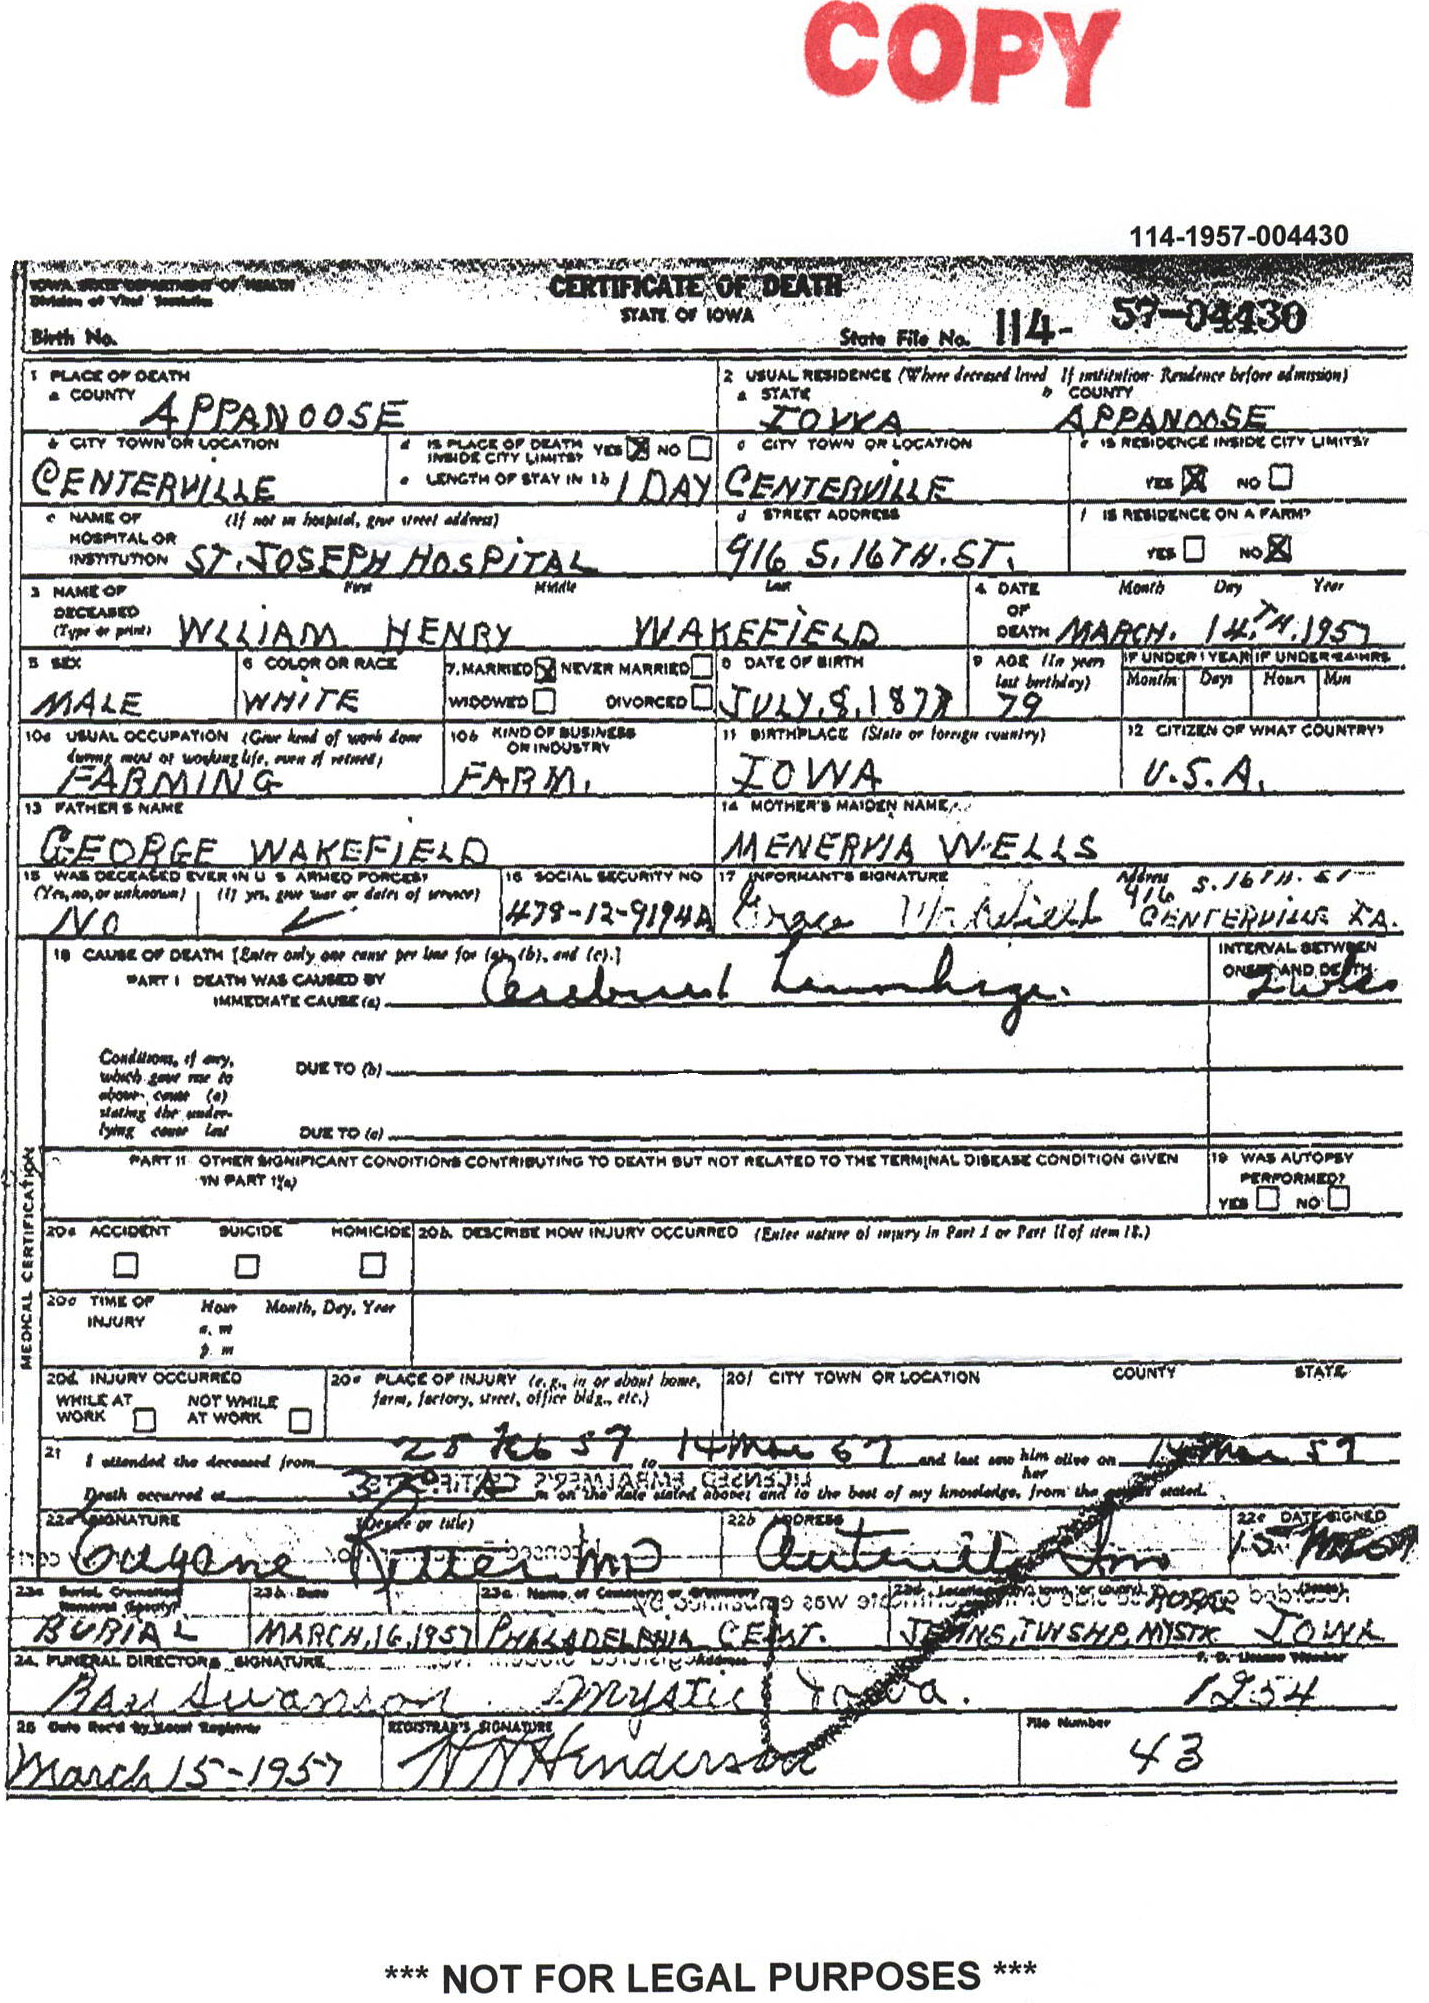 COPY
114-1957-004430
IOWA STATE DEPARTMENT OF HEALTH
Division of Vital Statistics
CERTIFICATE OF DEATH
STATE OF IOWA
Birth No.
State File No. 114- 57-04430
1 PLACE OF DEATH
a COUNTY
APPANOOSE
2 USUAL RESIDENCE (Where deceased lived If institution Residence before admission)
a STATE b COUNTY
IOWA APPANOOSE
b CITY TOWN OR LOCATION
CENTERVILLE
d IS PLACE OF DEATH INSIDE CITY LIMITS? YES NO
e LENGTH OF STAY IN 1b 1 DAY
c CITY TOWN OR LOCATION
CENTERVILLE
e IS RESIDENCE INSIDE CITY LIMITS?
YES NO
c NAME OF HOSPITAL OR INSTITUTION (If not in hospital, give street address)
ST. JOSEPH HOSPITAL
d STREET ADDRESS
916 S. 16TH. ST.
f IS RESIDENCE ON A FARM?
YES NO
3 NAME OF DECEASED (Type or print) First Middle Last
WLLIAM HENRY WAKEFIELD
4 DATE OF DEATH Month Day Year
MARCH. 14.TH.1957
5 SEX
MALE
6 COLOR OR RACE
WHITE
7. MARRIED NEVER MARRIED
WIDOWED DIVORCED
8 DATE OF BIRTH
JULY.8.1877
9 AGE (In years last birthday)
79
IF UNDER 1 YEAR IF UNDER 24 HRS
Months Days Hours Min
10a USUAL OCCUPATION (Give kind of work done during most of working life, even if retired)
FARMING
10b KIND OF BUSINESS OR INDUSTRY
FARM.
11 BIRTHPLACE (State or foreign country)
IOWA
12 CITIZEN OF WHAT COUNTRY?
U.S.A.
13 FATHER'S NAME
GEORGE WAKEFIELD
14 MOTHER'S MAIDEN NAME
MENERVIA WELLS
15 WAS DECEASED EVER IN U S ARMED FORCES?
(Yes, no, or unknown) (If yes, give war or dates of service)
NO
16 SOCIAL SECURITY NO
478-12-9194A
17 INFORMANT'S SIGNATURE Address
Grace Wakefield 916 S. 16TH. ST
CENTERVILLE IA.
18 CAUSE OF DEATH [Enter only one cause per line for (a), (b), and (c).]
PART I DEATH WAS CAUSED BY
IMMEDIATE CAUSE (a) Cerebral Hemorrhage.
INTERVAL BETWEEN ONSET AND DEATH
2 wks
Conditions, if any, which gave rise to above cause (a) stating the underlying cause last
DUE TO (b)
DUE TO (c)
MEDICAL CERTIFICATION
PART II OTHER SIGNIFICANT CONDITIONS CONTRIBUTING TO DEATH BUT NOT RELATED TO THE TERMINAL DISEASE CONDITION GIVEN
IN PART I(a)
19 WAS AUTOPSY PERFORMED?
YES NO
20a ACCIDENT SUICIDE HOMICIDE
20b. DESCRIBE HOW INJURY OCCURRED (Enter nature of injury in Part I or Part II of item 18.)
20c TIME OF INJURY Hour Month, Day, Year
a. m
p. m
20d. INJURY OCCURRED
WHILE AT WORK NOT WHILE AT WORK
20e PLACE OF INJURY (e.g., in or about home, farm, factory, street, office bldg., etc.)
20f CITY TOWN OR LOCATION COUNTY STATE
21 I attended the deceased from 28 Feb 57 to 14 Mar 57 and last saw him her alive on 14 Mar 57
Death occurred at m on the date stated above; and to the best of my knowledge, from the causes stated.
22a SIGNATURE (Degree or title)
Eugene Ritter MD
22b ADDRESS
22c DATE SIGNED
23a Burial, Cremation Removal (Specify)
BURIAL
23b Date
MARCH,16,1957
23c Name of Cemetery or Crematory
PHILADELPHIA CEMT.
23d Location (City, town, or county) (State)
JOHNS, TWSHP, MYSTIC IOWA
24. FUNERAL DIRECTORS SIGNATURE Address F. D. License Number
Swanson Mystic Iowa. 1254
25 Date Rec'd by Local Registrar
March 15-1957
REGISTRAR'S SIGNATURE
Henderson
File Number
43
*** NOT FOR LEGAL PURPOSES ***